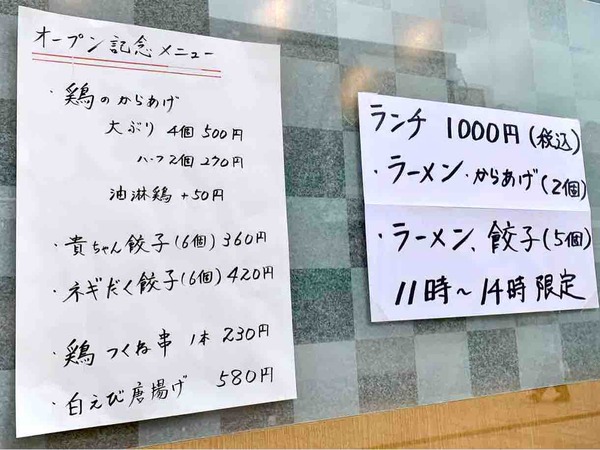 オープン記念メニュー
・鶏のからあげ
大ぶり 4個 500円
ハーフ 2個 270円
油淋鶏 +50円
・貴ちゃん餃子(6個) 360円
・ネギだく餃子(6個) 420円
・鶏つくね串 1本 230円
・白えび唐揚げ 580円
ランチ 1000円(税込)
・ラーメン・からあげ(2個)
・ラーメン、餃子(5個)
11時〜14時限定